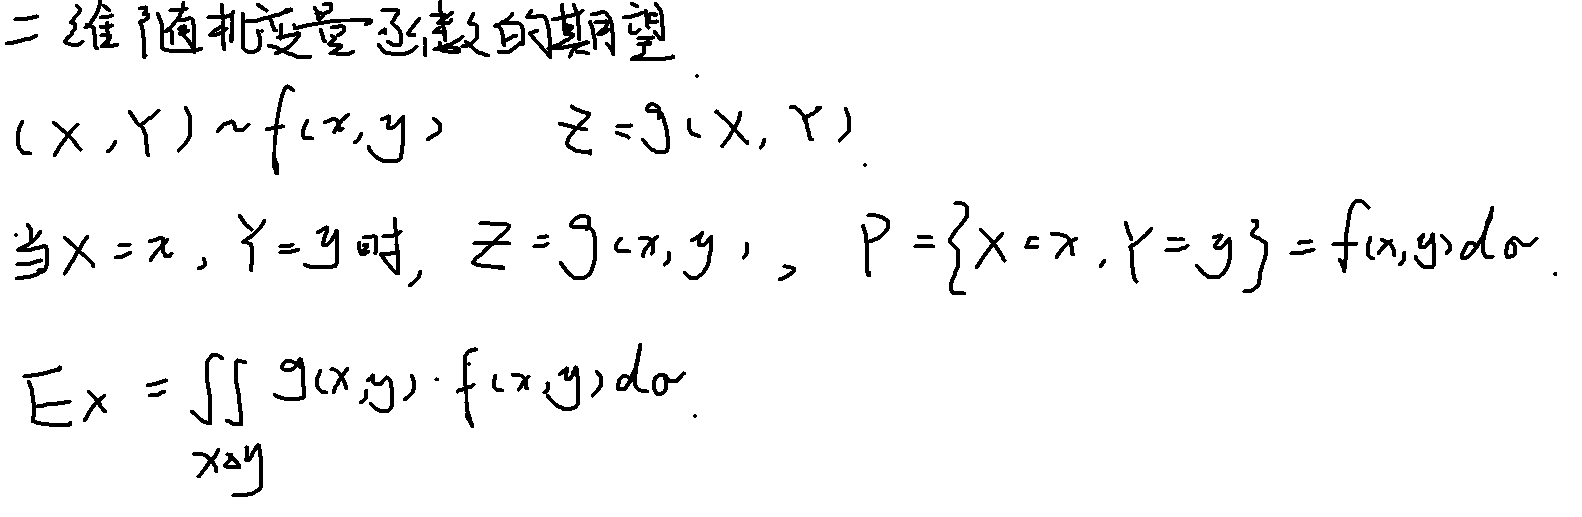 二维随机变量函数的期望.
(X,Y)~f(x,y) Z=g(X,Y).
当X=x,Y=y时, Z=g(x,y), P={X=x,Y=y}=f(x,y)dσ.
EX=∬g(x,y)·f(x,y)dσ.